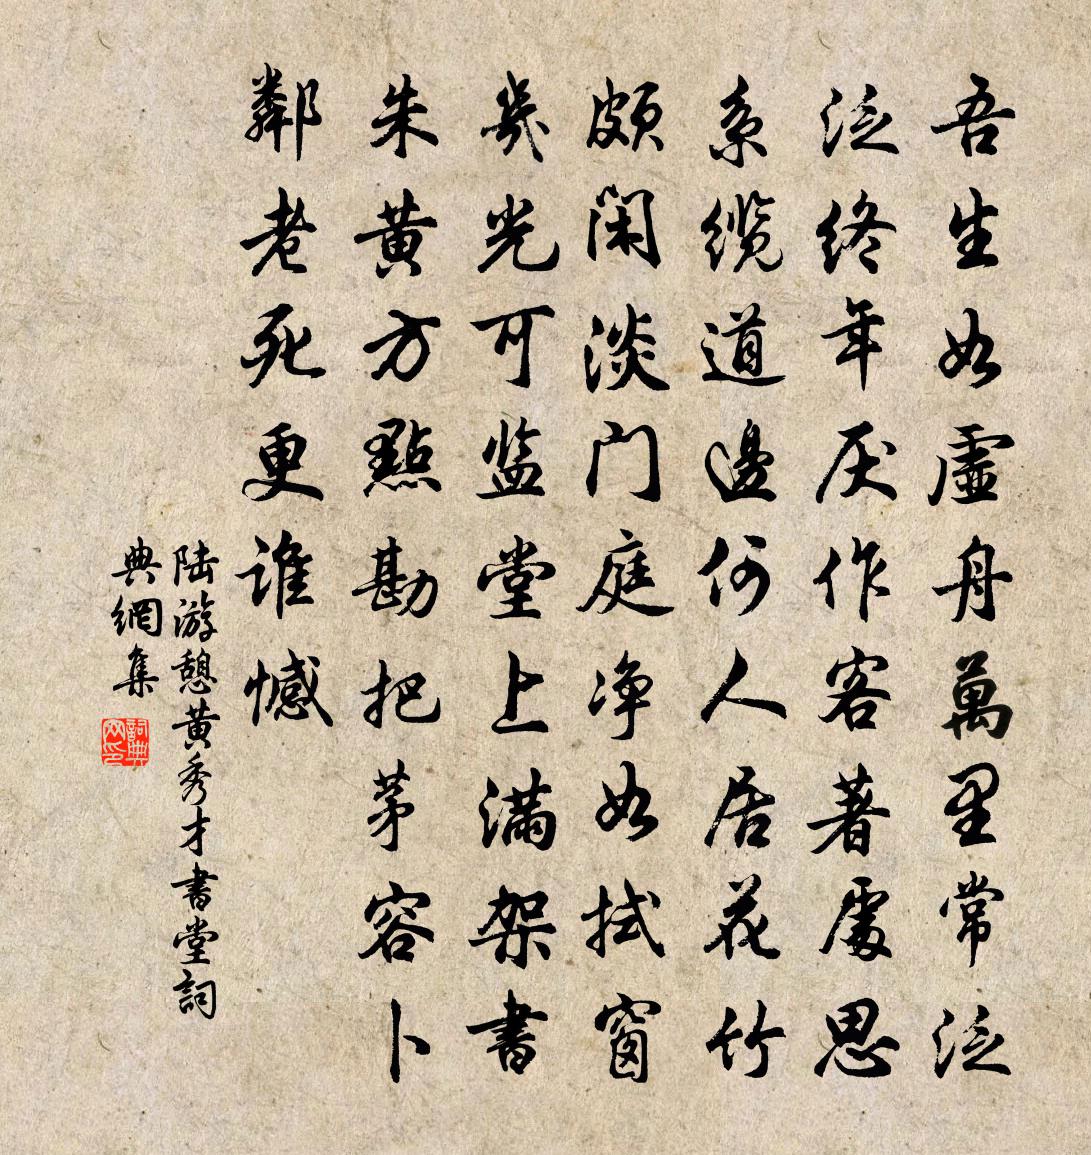 吾生如虛舟萬里常泛
泛终年厌作客著處思
系缆道邊何人居花竹
颇闲淡门庭净如拭窗
几光可监堂上滿架書
朱黄方點勘把茅容卜
鄰老死更谁憾
陆游憩黄秀才書堂詞
典網集
詞典网印